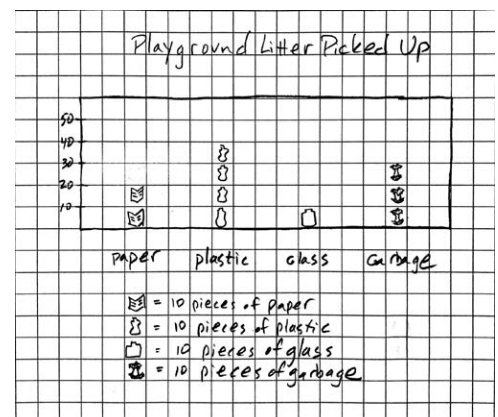 Playground Litter Picked Up
50
40
30
20
10
paper plastic glass Garbage
= 10 pieces of paper
= 10 pieces of plastic
= 10 pieces of glass
= 10 pieces of garbage